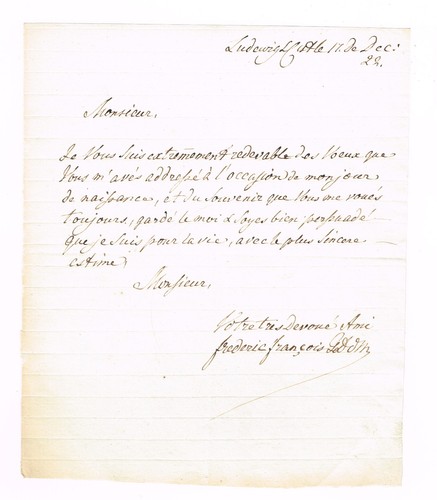 Ludewigslust le 17. de Dec:
22.
Monsieur,
Je Vous suis extremement redevable des Voeux que
Vous m'avés addressé à l'occasion de mon jour
de naissance, et du souvenir que Vous me voués
toujours, gardé le moi & soyes bien persuadé
que je suis pour la vie, avec le plus sincere
estime
Monsieur,
Vôtre tres devoué Ami
frederic françois